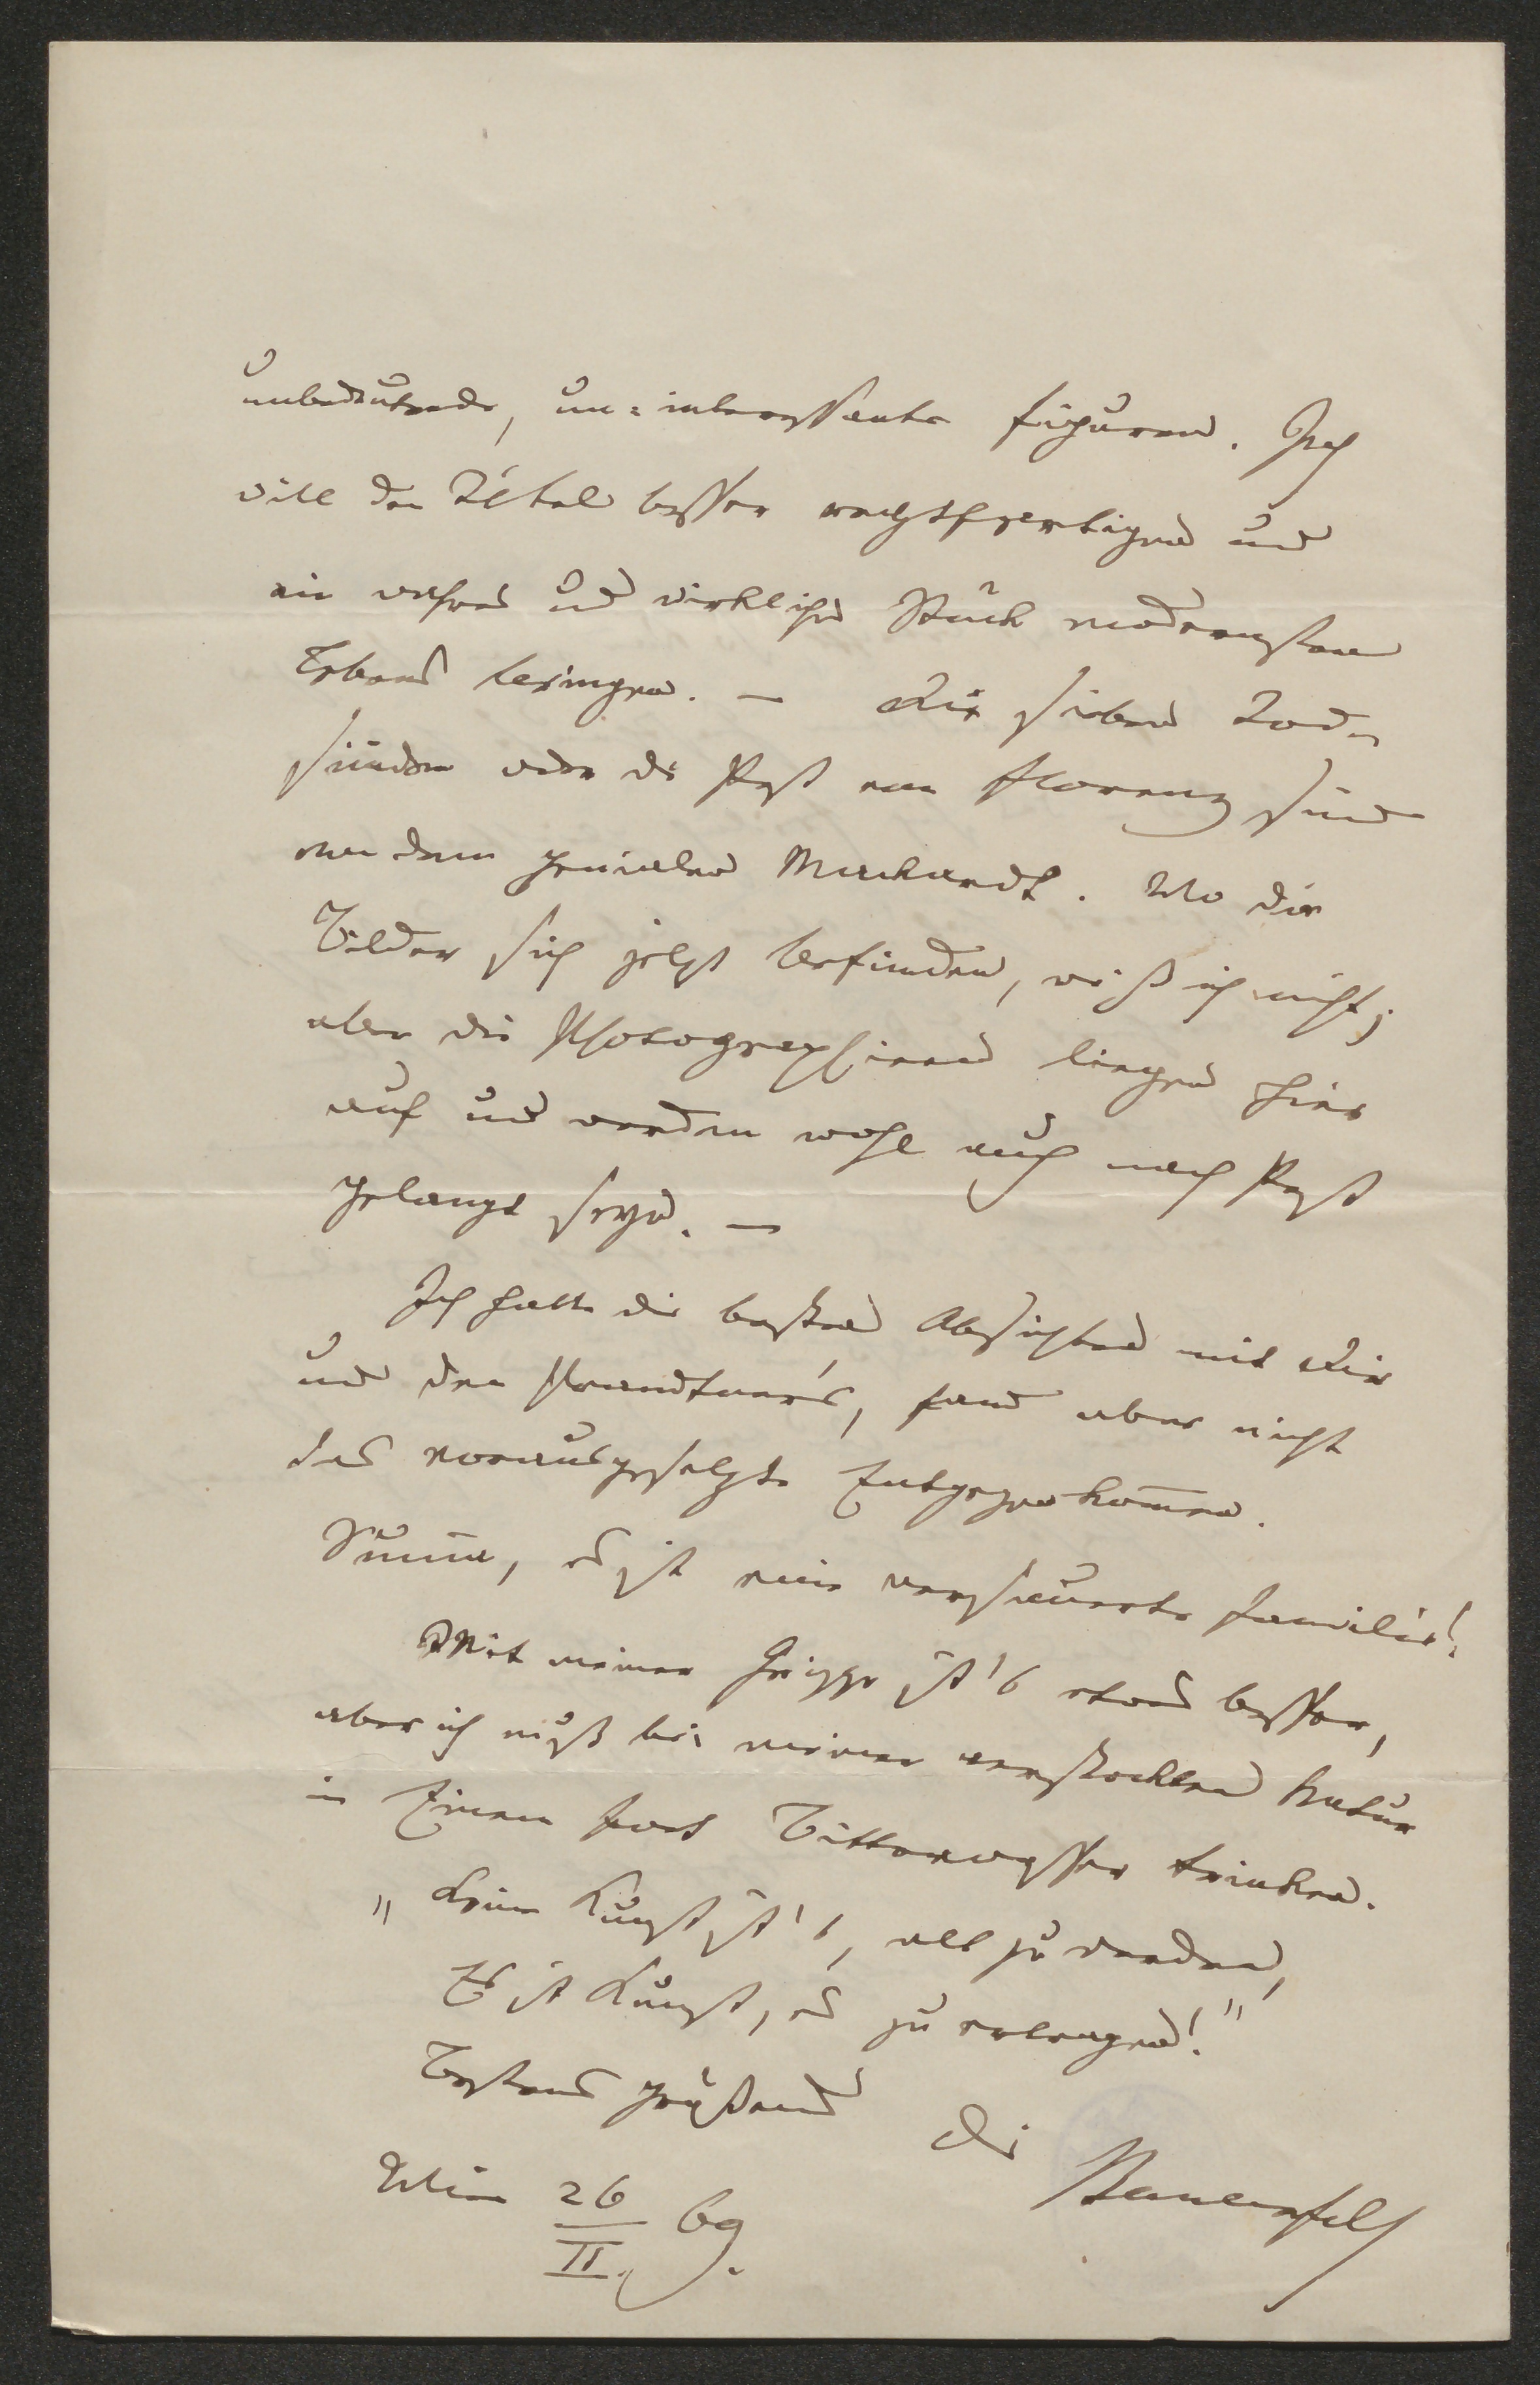 unbedeutende, un=interessante Figuren. Ich
will den Titel besser rechtfertigen und
ein wahres und wirkliches Stück modernsten
Lebens bringen. — Die sieben Tod-
sünden oder die Pest von Florenz sind
von dem genialen Mackardt. Wo die
Bilder sich jetzt befinden, weiß ich nicht;
aber die Photographieen liegen hier
auf und werden wohl auch nach Pest
gelangt seyn. —
Ich hatte die besten Absichten mit Dir
und den, fand aber nicht
das vorausgesetzte Entgegenkommen.
Summa, es ist eine versauerte Familie!
Mit meiner Grippe ist's etwas besser,
aber ich muß bei meiner verstockten Natur
in Einem fort Bitterwasser trinken.
„Keine Kunst ist's, alt zu werden,
Es ist Kunst, es zu ertragen!"
Bestens grüßend
Dein Bauernfeld
Wien 26/II. 69.